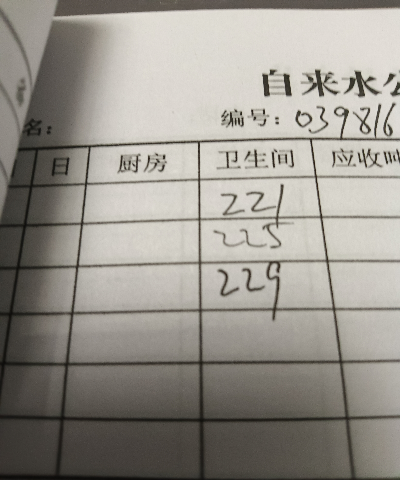 自来水公
名: 编号: 039816
日 厨房 卫生间 应收
221
225
229